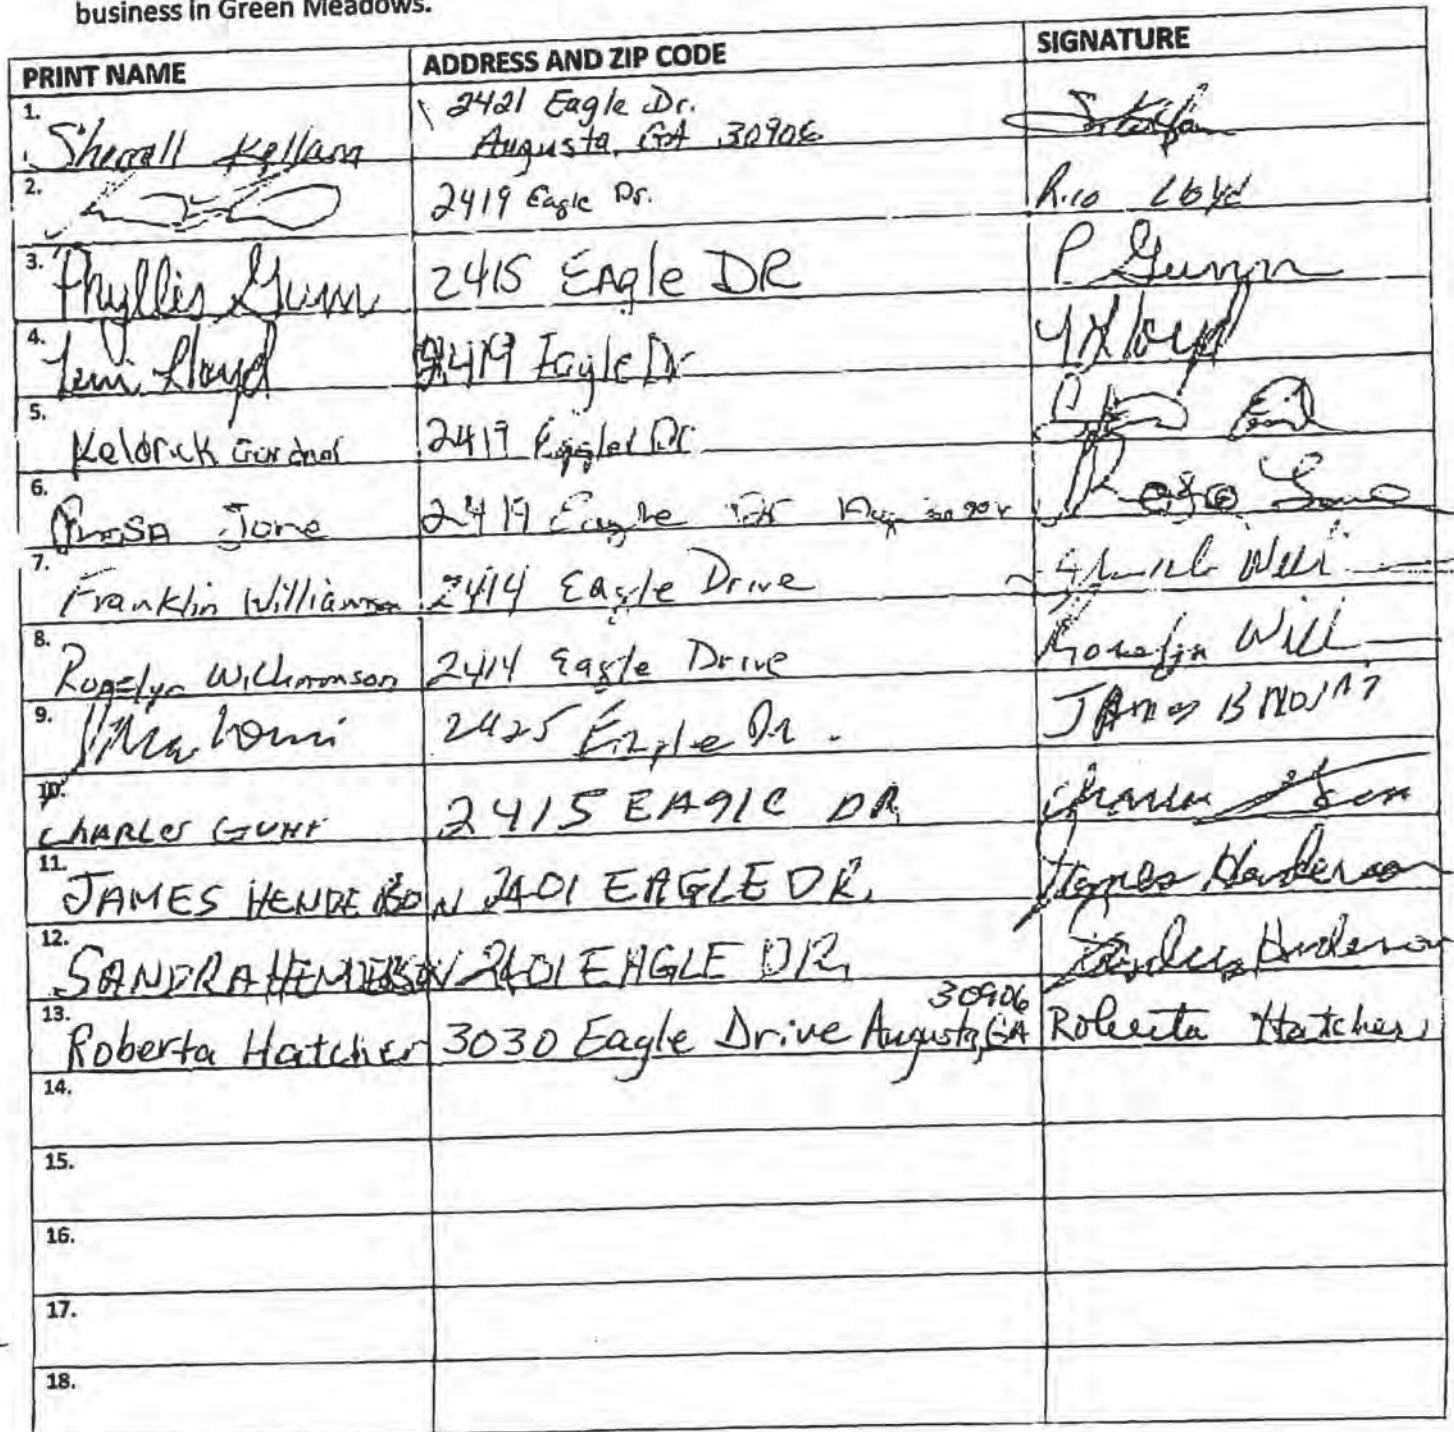 business in Green Meadows.
PRINT NAME ADDRESS AND ZIP CODE SIGNATURE
1. Sherrall Kellam 2421 Eagle Dr.
Augusta, GA 30906
2. 2419 Eagle Dr. Rico Lloyd
3. Phyllis Gunn 2415 Eagle DR P Gunn
4. Lloyd 2419 Eagle Dr
5. Keldrick 2419 Dr
6. Rosa Jone 2419 Eagle Dr
7. Franklin Williamson 2414 Eagle Drive
8. Williamson 2414 Eagle Drive Will
9. 2425 Eagle Dr. James B
10. CHARLES 2415 EAGLE DR
11. JAMES HENDERSON 2401 EAGLE DR. James Henderson
12. SANDRA HENDERSON 2401 EAGLE DR. Sandra Henderson
13. Roberta Hatcher 3030 Eagle Drive Augusta, GA 30906 Roberta Hatcher
14.
15.
16.
17.
18.